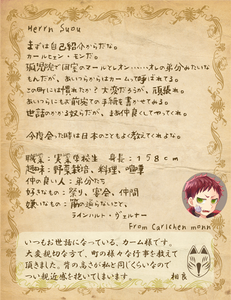 Herrn Suou
まずは自己紹介からだな。
カールヒェン・モンだ。
孤児院で田舎のマールとレオン……オレの弟分みたいな
もんだが、あいつらからはカーム様ばれてる。
この町には慣れたか？大変だろうが、頑張れ。
あいつらにもお前宛ての手紙を書かせてみる。
世話のかかる奴らだが、まあ仲良くしてやってくれ。
今度会った時は日本のことをよく教えてくれよな。
職業：実業学校生　身長：158cm
趣味：野菜栽培、料理、喧嘩
仲の良い人：弟分たち
好きなもの：祭り、宴会、仲間
嫌いなもの：筋の通らないこと、
ラインハルト・ヴェルナー
From Carlchen monn
いつもお世話になっている、カーム様です。
大変親切な方で、町の様々な行事を教えて
頂きました。背の高さが私と同じくらいなので
つい親近感を抱いてしまいます。
相良